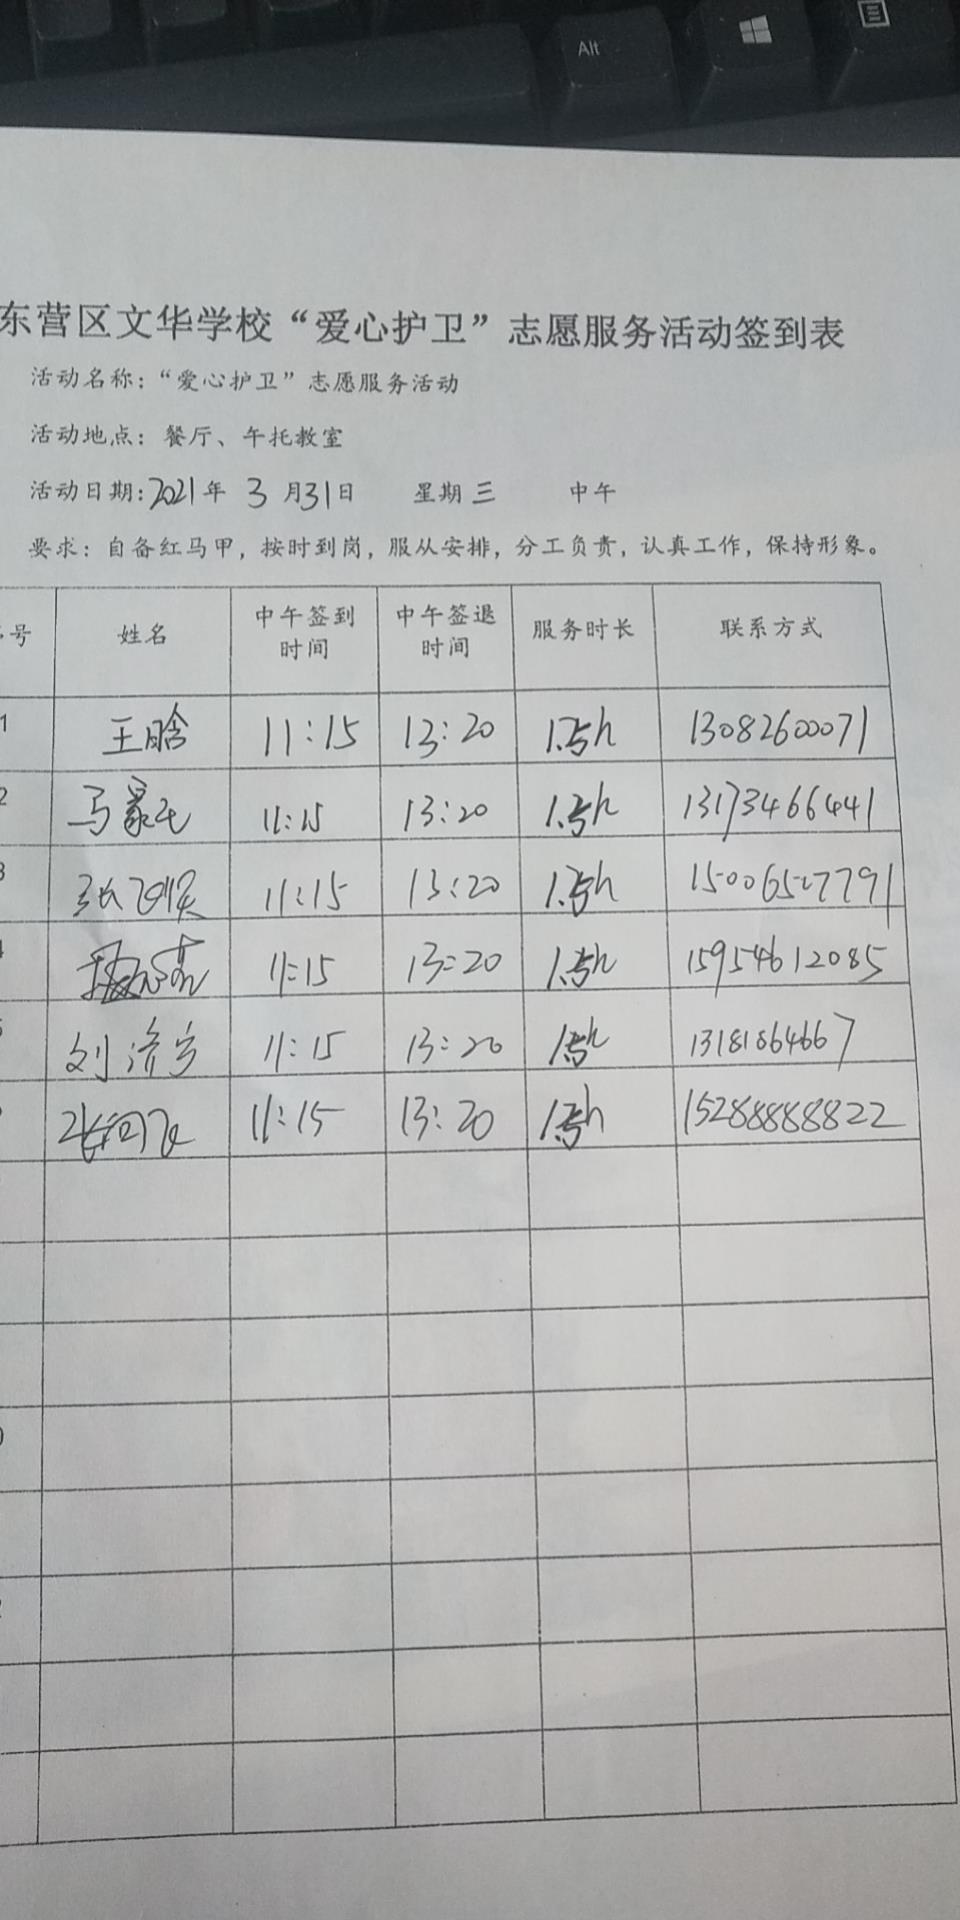 Alt
东营区文华学校“爱心护卫”志愿服务活动签到表
活动名称：“爱心护卫”志愿服务活动
活动地点：餐厅、午托教室
活动日期：2021年 3月31日 星期三 中午
要求：自备红马甲，按时到岗，服从安排，分工负责，认真工作，保持形象。
号 姓名 中午签到时间 中午签退时间 服务时长 联系方式
1 王晗 11:15 13:20 1.5h 13082600071
2 马 11:15 13:20 1.5h 13173466441
3 张 11:15 13:20 1.5h 15006527791
11:15 13:20 1.5h 15954612085
刘济宁 11:15 13:20 1.5h 13181864667
张 11:15 13:20 1.5h 15288888822